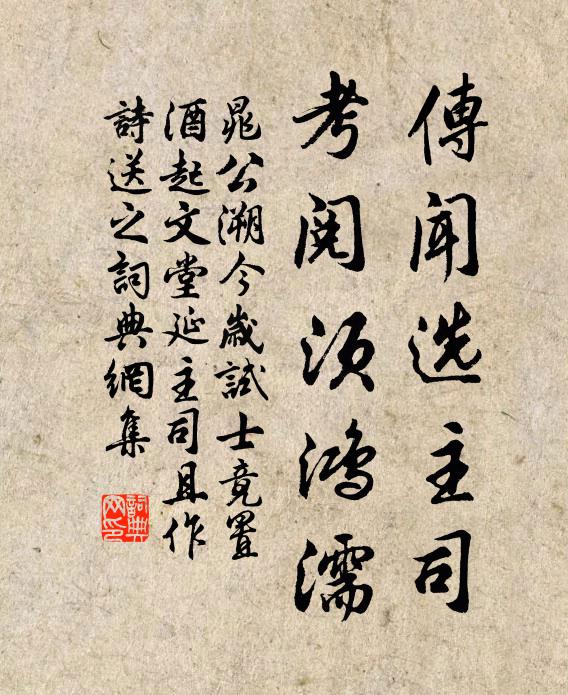 傳聞选主司
考阅须鸿濡
晁公溯今歲試士竟置
酒起文堂延主司且作
詩送之詞典網集
詞典网印